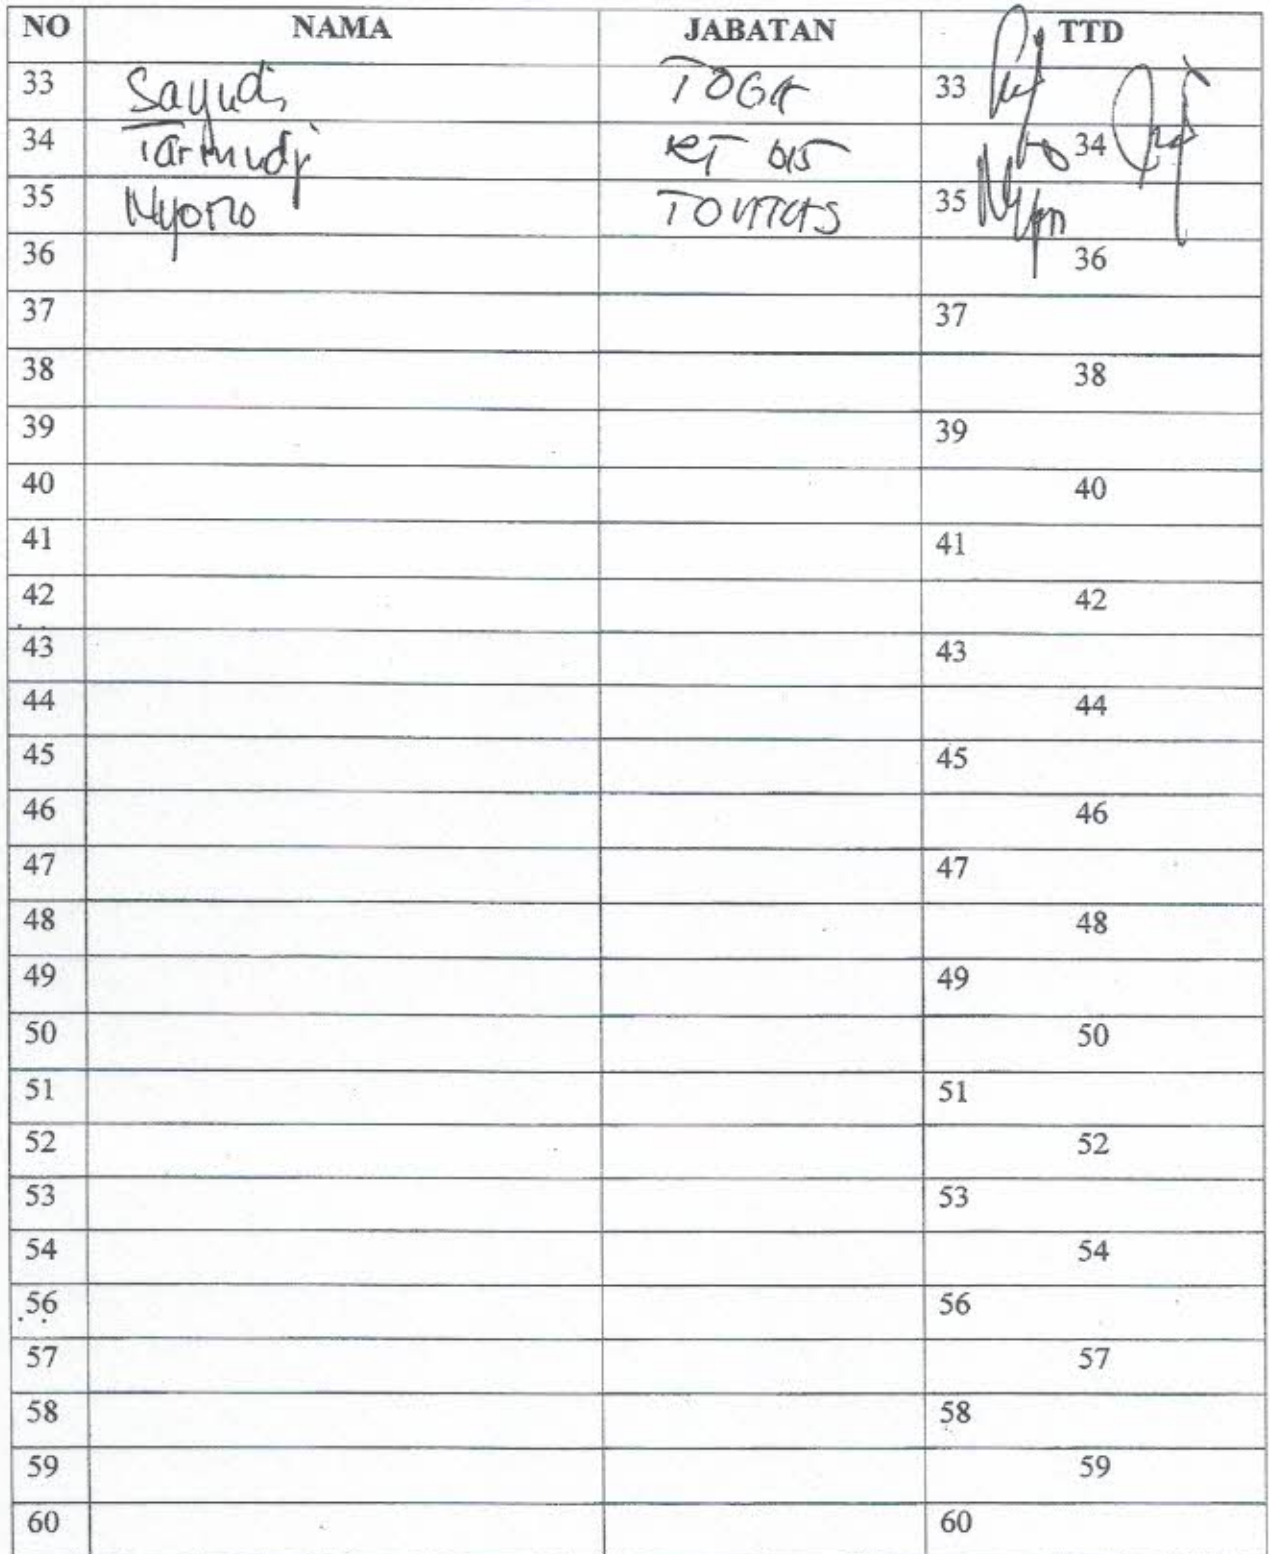 NO NAMA JABATAN TTD
33 Sayudi TOGA 33
34 Tarmudji RT 015 34
35 Nyono 35
36 36
37 37
38 38
39 39
40 40
41 41
42 42
43 43
44 44
45 45
46 46
47 47
48 48
49 49
50 50
51 51
52 52
53 53
54 54
56 56
57 57
58 58
59 59
60 60